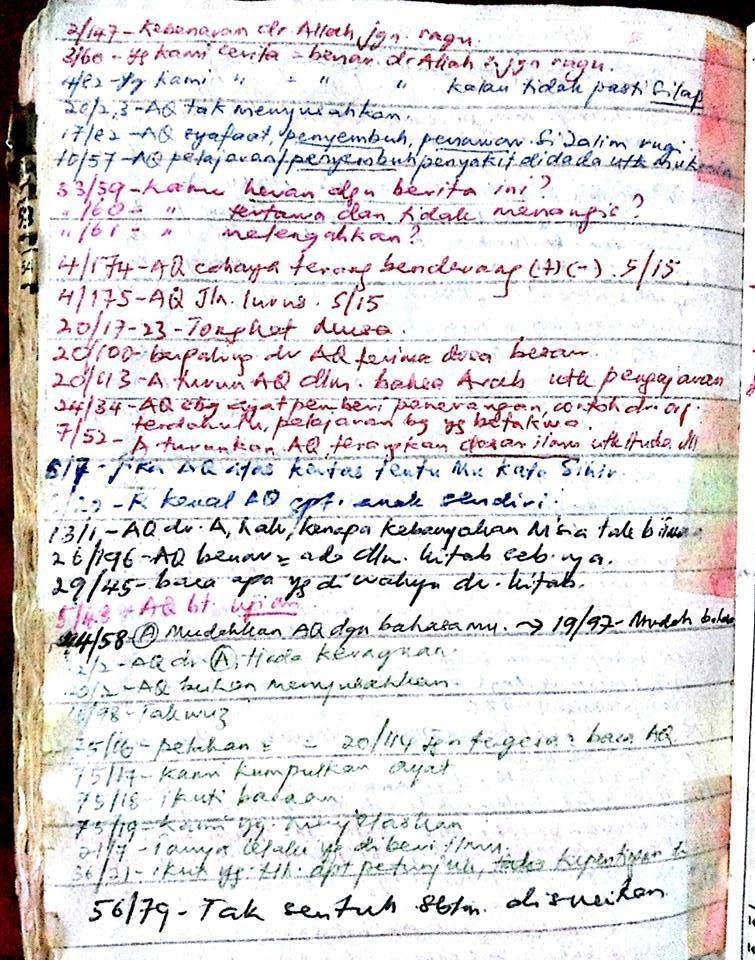 2/147 - Kebenaran dr Allah jgn. ragu.
3/60 - yg kami cerita = benar dr Allah = jgn ragu.
4/82 - yg kami " = " " kalau tidak pasti silap
20/2,3 - AQ tak menyusahkan.
17/82 - AQ syafaat, penyembuh, penawar. Si Zalim rugi.
10/57 - AQ pelajaran/penyembuh penyakit didada utk mukmin
53/59 - Kamu heran dgn berita ini?
" /60 - " tertawa dan tidak menangis?
" /61 - " melengahkan?
4/174 - AQ cahaya terang benderang (+)(-). 5/15.
4/175 - AQ Jln. lurus. 5/15
20/17-23 - Tongkat Musa.
20/100 - berpaling dr AQ terima dosa besar.
20/113 - A turun AQ dlm. bahasa Arab utk pengajaran
24/34 - AQ ayat pemberi penerangan, contoh dr. org
terdahulu, pelajaran bg yg bertakwa.
7/52 - A turunkan AQ terangkan dasar ilmu utk
6/7 - jika AQ atas kertas tentu Mu kata Sihir.
K kenal AQ spt. anak sendiri.
13/1 - AQ dr. A, hak, kenapa kebanyakan M'sia tak
26/196 - AQ benar = ada dlm. kitab seb. nya.
29/45 - baca apa yg diwahyu dr. kitab.
5/48 - AQ bt. ujian
44/58 (A) Mudahkan AQ dgn bahasamu. → 19/97 - Mudah
2/2 - AQ dr (A) tiada keraguan.
20/2 - AQ bukan menyusahkan.
16/98 - Takwuz
75/16 - pelahan = = 20/114 jgn tergesa = baca AQ
75/17 - Kami kumpulkan ayat
75/18 - ikuti bacaan
75/19 - Kami yg. menjelaskan
21/7 - Tanya lelaki yg diberi ilmu.
36/21 - ikut yg tlh. dpt petunjuk,
56/79 - Tak sentuh sblm. disucikan